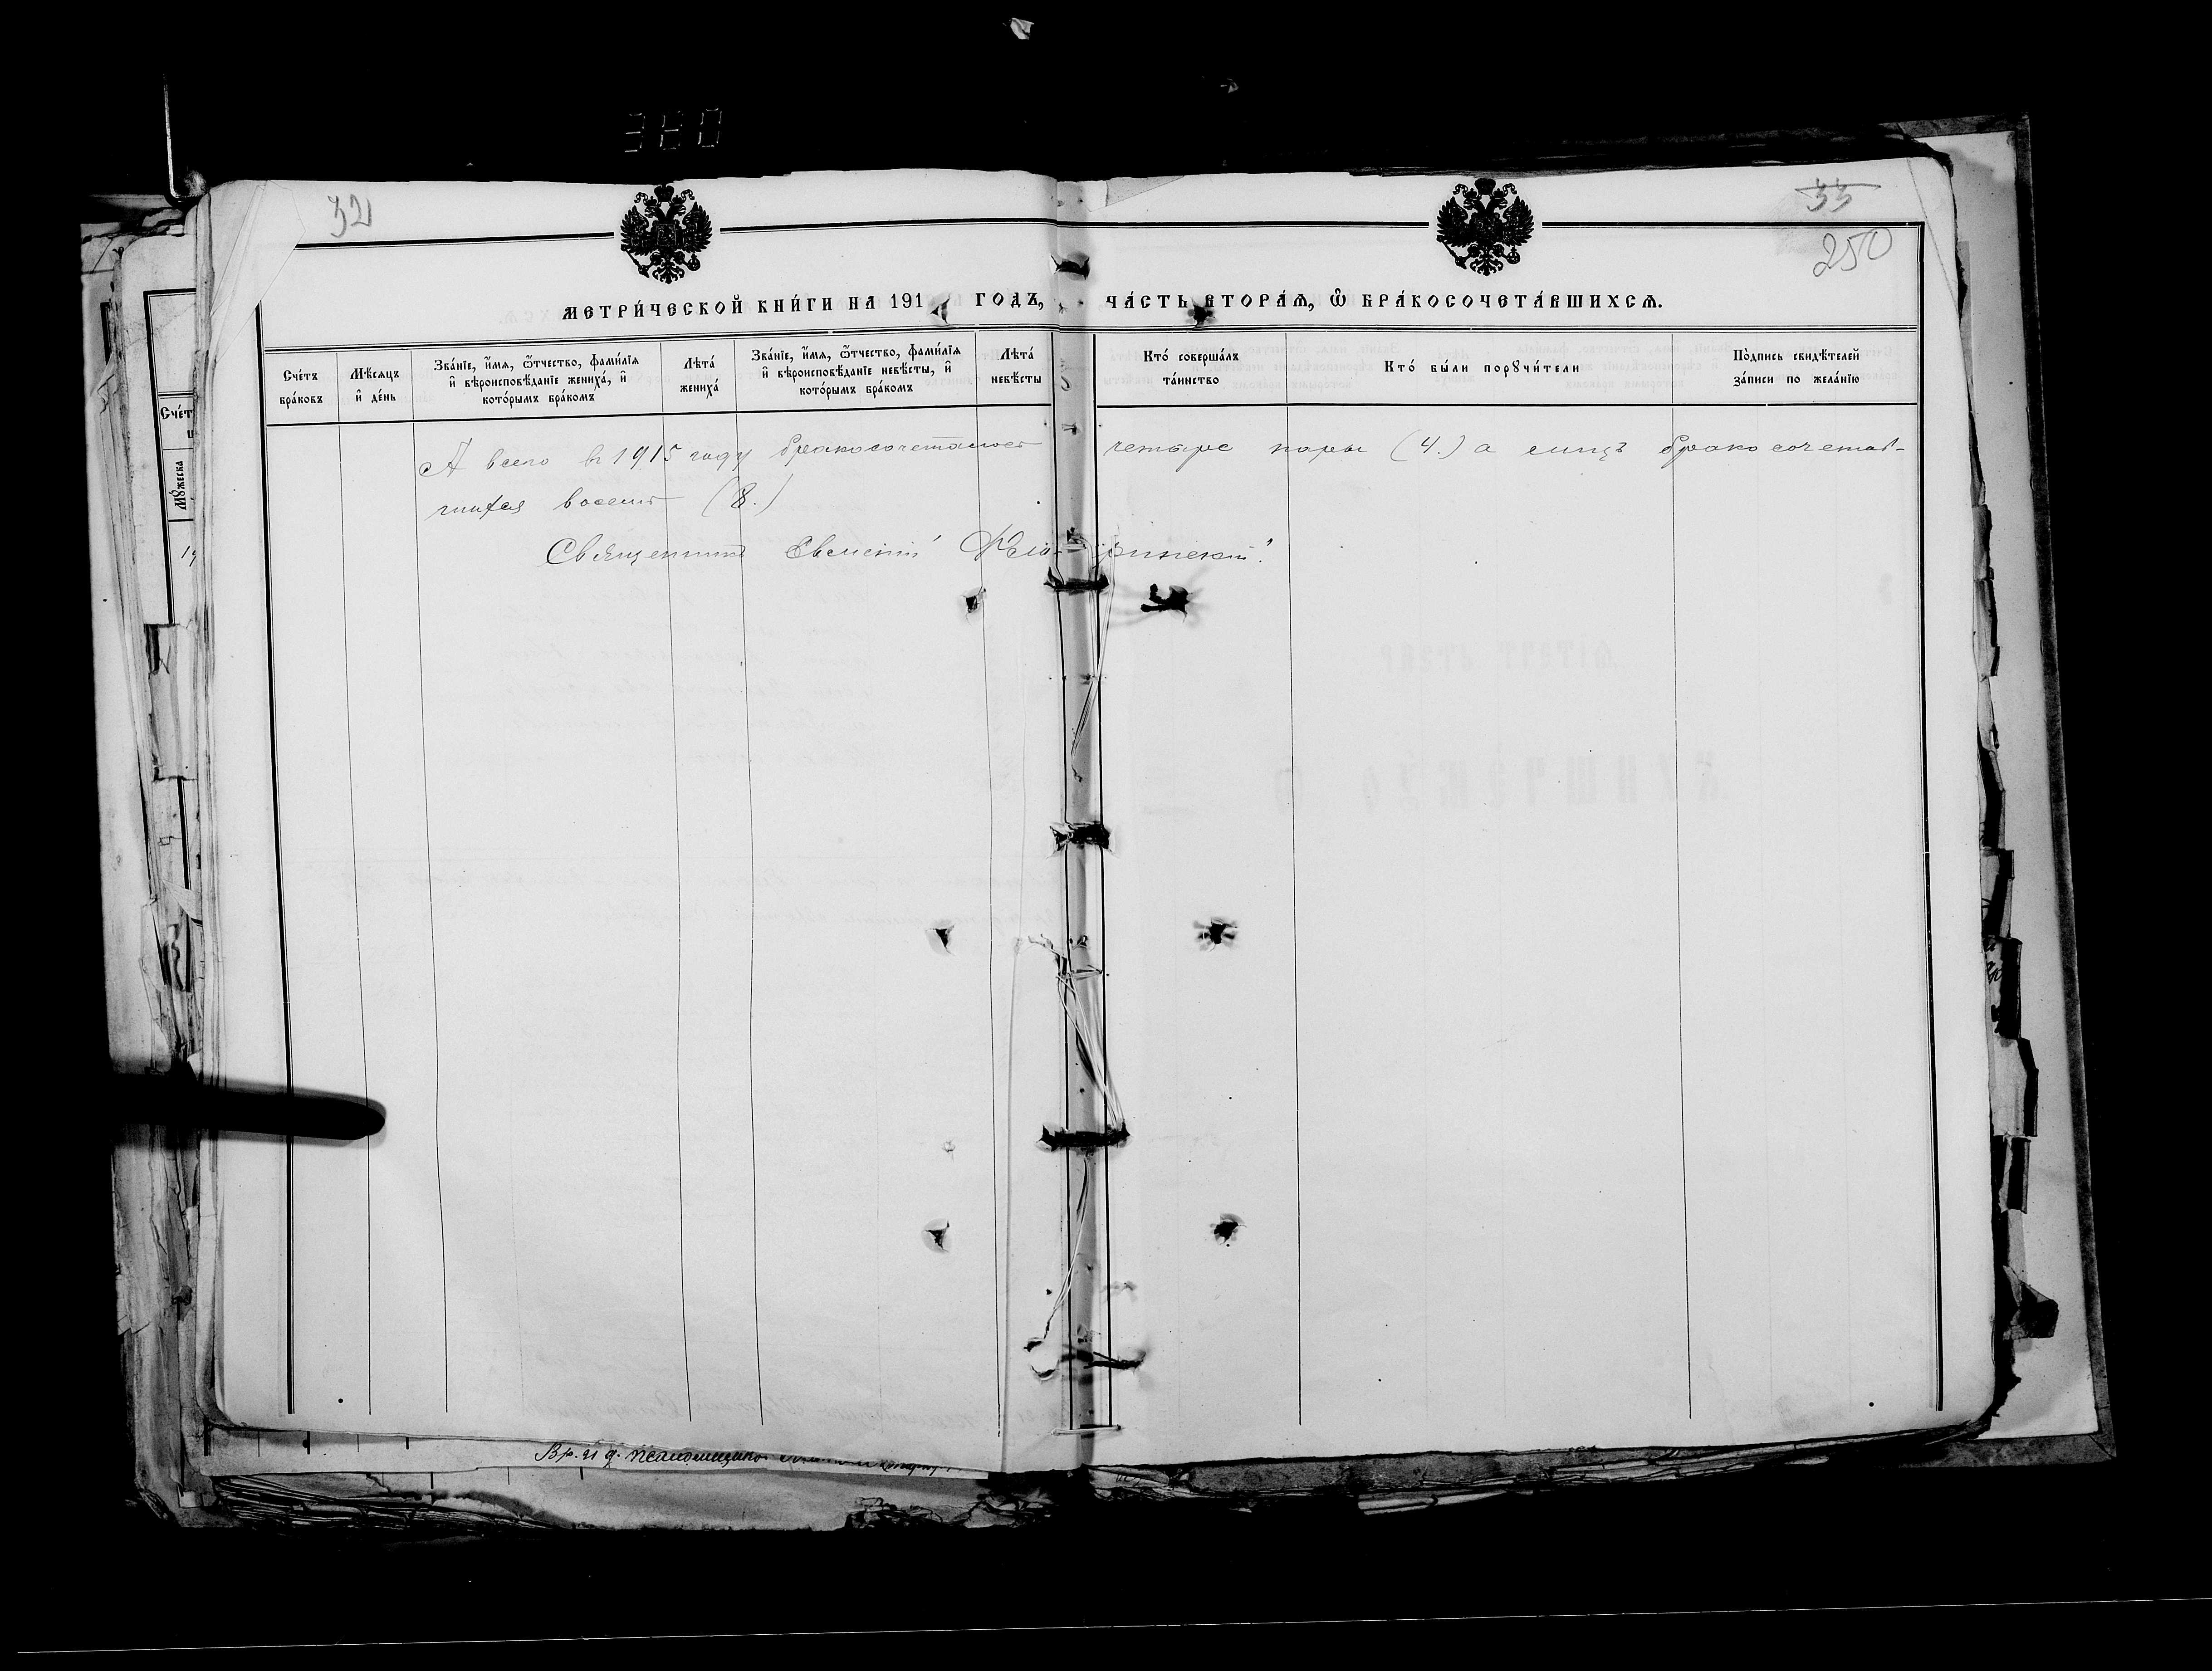 320
32
33
250
МЕТРИ́ЧЕСКОЙ КНИ́ГИ НА 191 ГОДЪ, ЧА́СТЬ ВТОРА́Ѧ, Ѽ БРА́КОСОЧЕТА́ВШИХСѦ.
Сче́тъ бра́ковъ
Мѣ́сяцъ и҆ де́нь
Зва́нїе, и҆́мѧ, ѻ҆́тчество, фами́лїѧ и҆ вѣроисповѣ́данїе жениха́, и҆ кото́рымъ бра́комъ
Лѣта́ жениха́
Зва́нїе, и҆́мѧ, ѻ҆́тчество, фами́лїѧ и҆ вѣроисповѣ́данїе невѣ́сты, и҆ кото́рымъ бра́комъ
Лѣта́ невѣ́сты
Кто́ соверша́лъ та́инство
Кто́ бы́ли порꙋчи́тели
По́дпись свидѣ́телей за́писи по жела́нїю
Сче́т
Мꙋ́жеска
А всего въ 1915 году бракосочеталось четыре пары (4.) а лицъ бракосочетав-
шихся восемь (8.)
Священникъ Евсевій
Вр. и д.